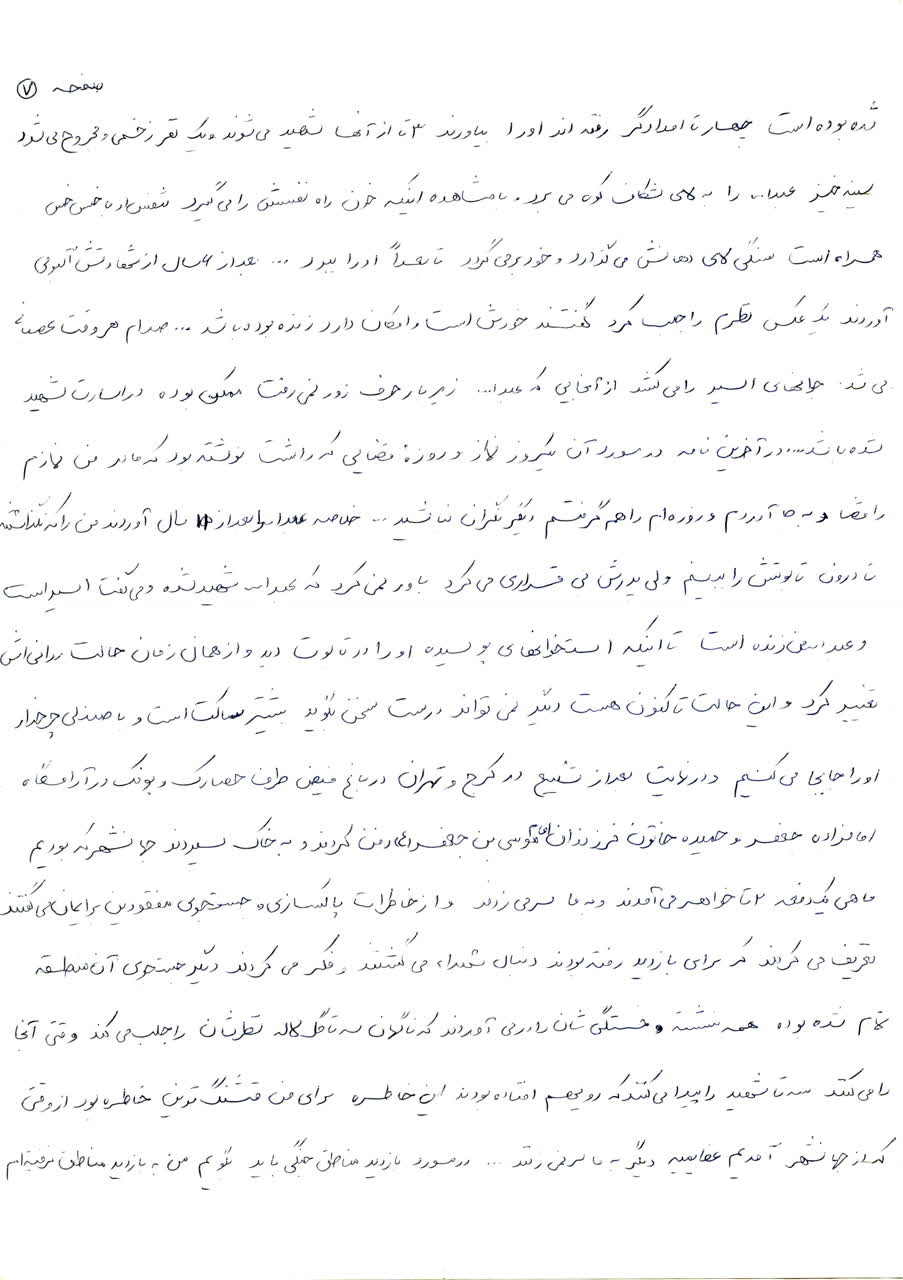 صفحه ۷
شده بوده است چهار تا امدادگر رفته اند او را بیاورند ۳ تا از آنها شهید می شوند و یک نفر زخمی و مجروح می شود
سینه خیز عبدا... را به لای شکاف کوه می برد. با مشاهده اینکه خون راه نفسش را می گیرد تنفس او با خس خس
همراه است سنگی لای دهانش می گذارد و خود برمی گردد تا بعداً او را ببرد ... بعد از ۶ سال از شهادتش آلبومی
آوردند یک عکس نظرم را جلب کرد گفتند خودش است و امکان دارد زنده بوده باشد ... صدام هر وقت عصبانی
می شد جوانهای اسیر را می کشد از آنجایی که عبدا... زیر بار حرف زور نمی رفت ممکن بوده در اسارت شهید
شده باشد.... در آخرین نامه در مورد آن یکروز نماز و روزه قضایی که داشت نوشته بود که مادر من نمازم
را قضا به جا آوردم و روزه ام را هم گرفتم دیگر نگران نباشید ... خلاصه عبدا... را بعد از سال آوردند من را که نگذاشتند
تا درون تابوتش را ببینم ولی پدرش بی قراری می کرد باور نمی کرد که عبدا... شهید شده و می گفت اسیر است
و عبدا... من زنده است تا اینکه استخوانهای پوسیده او را در تابوت دید و از همان زمان حالت روانی اش
تغییر کرد و این حالت تا کنون هست دیگر نمی تواند درست سخن بگوید بیشتر ساکت است و با صندلی چرخدار
او را جابجا می کنیم و در نهایت بعد از تشییع در کرج و تهران در باغ فیض طرف حصارک و پونک در آرامگاه
امامزاده جعفر و حمیده خاتون فرزندان امام موسی بن جعفر دفن کردند و به خاک سپردند جهانشهر که بودیم
ماهی یکدفعه ۲ تا خواهر می آمدند و به ما سر می زدند و از خاطرات پاکسازی و جستجوی مفقودین برایمان می گفتند
تعریف می کردند که برای بازدید رفته بودند دنبال شهداء می گشتند و فکر می کردند دیگر جستجوی آن منطقه
تمام شده بوده همه نشسته و خستگی شان را در می آوردند که ناگهان سه تا گل لاله نظرشان را جلب می کند وقتی آنجا
را می کنند سه تا شهید را پیدا می کنند که روی هم افتاده بودند این خاطره برای من قشنگ ترین خاطره بود از وقتی
که از جهانشهر آمدیم دیگر به ما سر نمی زنند ... در مورد بازدید مناطق جنگی باید بگویم من به بازدید مناطق نرفته ام